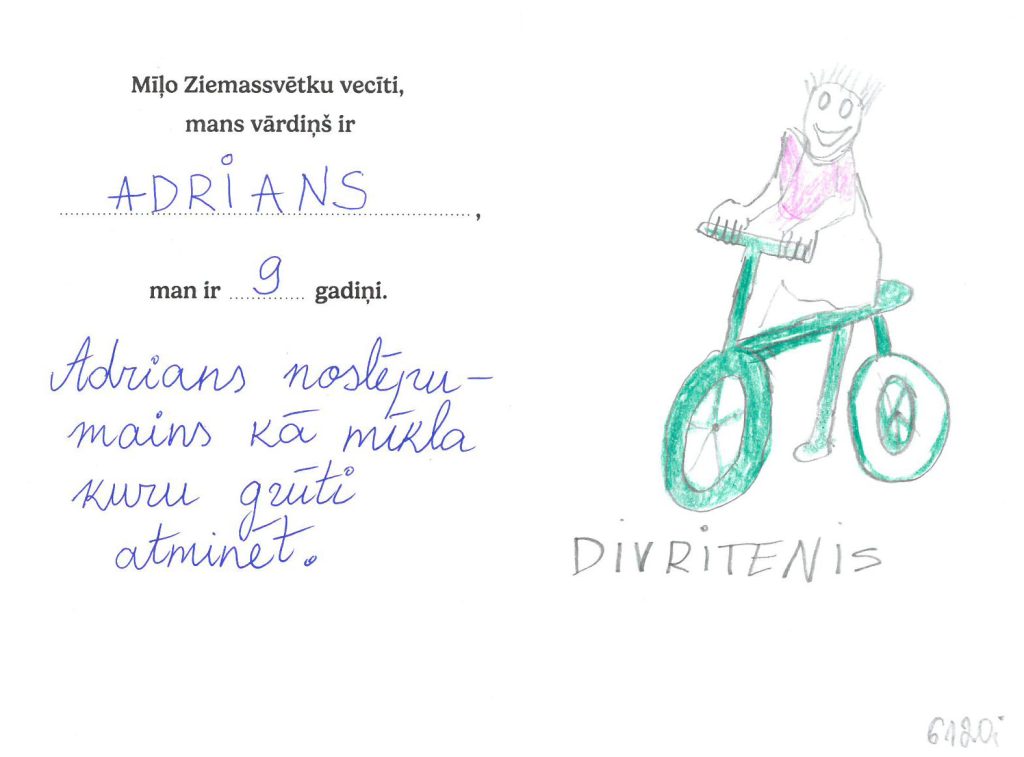 Mīļo Ziemassvētku vecīti,
mans vārdiņš ir
ADRIANS,
man ir 9 gadiņi.
Adrians nostēpu-
mains kā mīkla
kuru grūti
atminēt.
DIVRITENIS